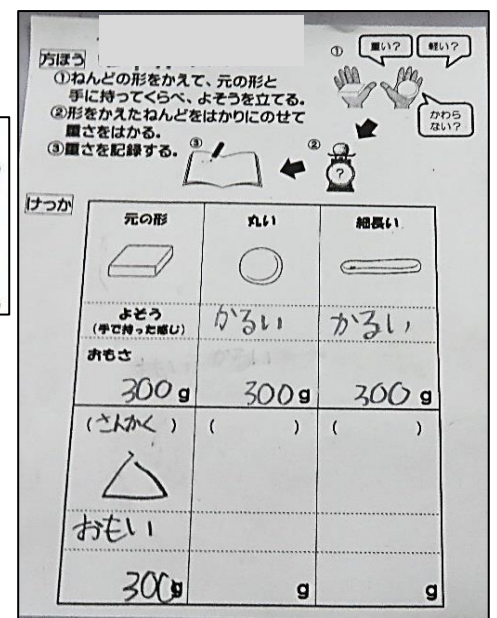 方ほう
①ねんどの形をかえて、元の形と
手に持ってくらべ、よそうを立てる。
②形をかえたねんどをはかりにのせて
重さをはかる。
③重さを記録する。
①
重い?
軽い?
かわら
ない?
②
?
③
けっか
元の形 丸い 細長い
よそう
(手で持った感じ)
かるい かるい
おもさ
300g 300g 300g
(さんかく) ( ) ( )
おもい
300g g g